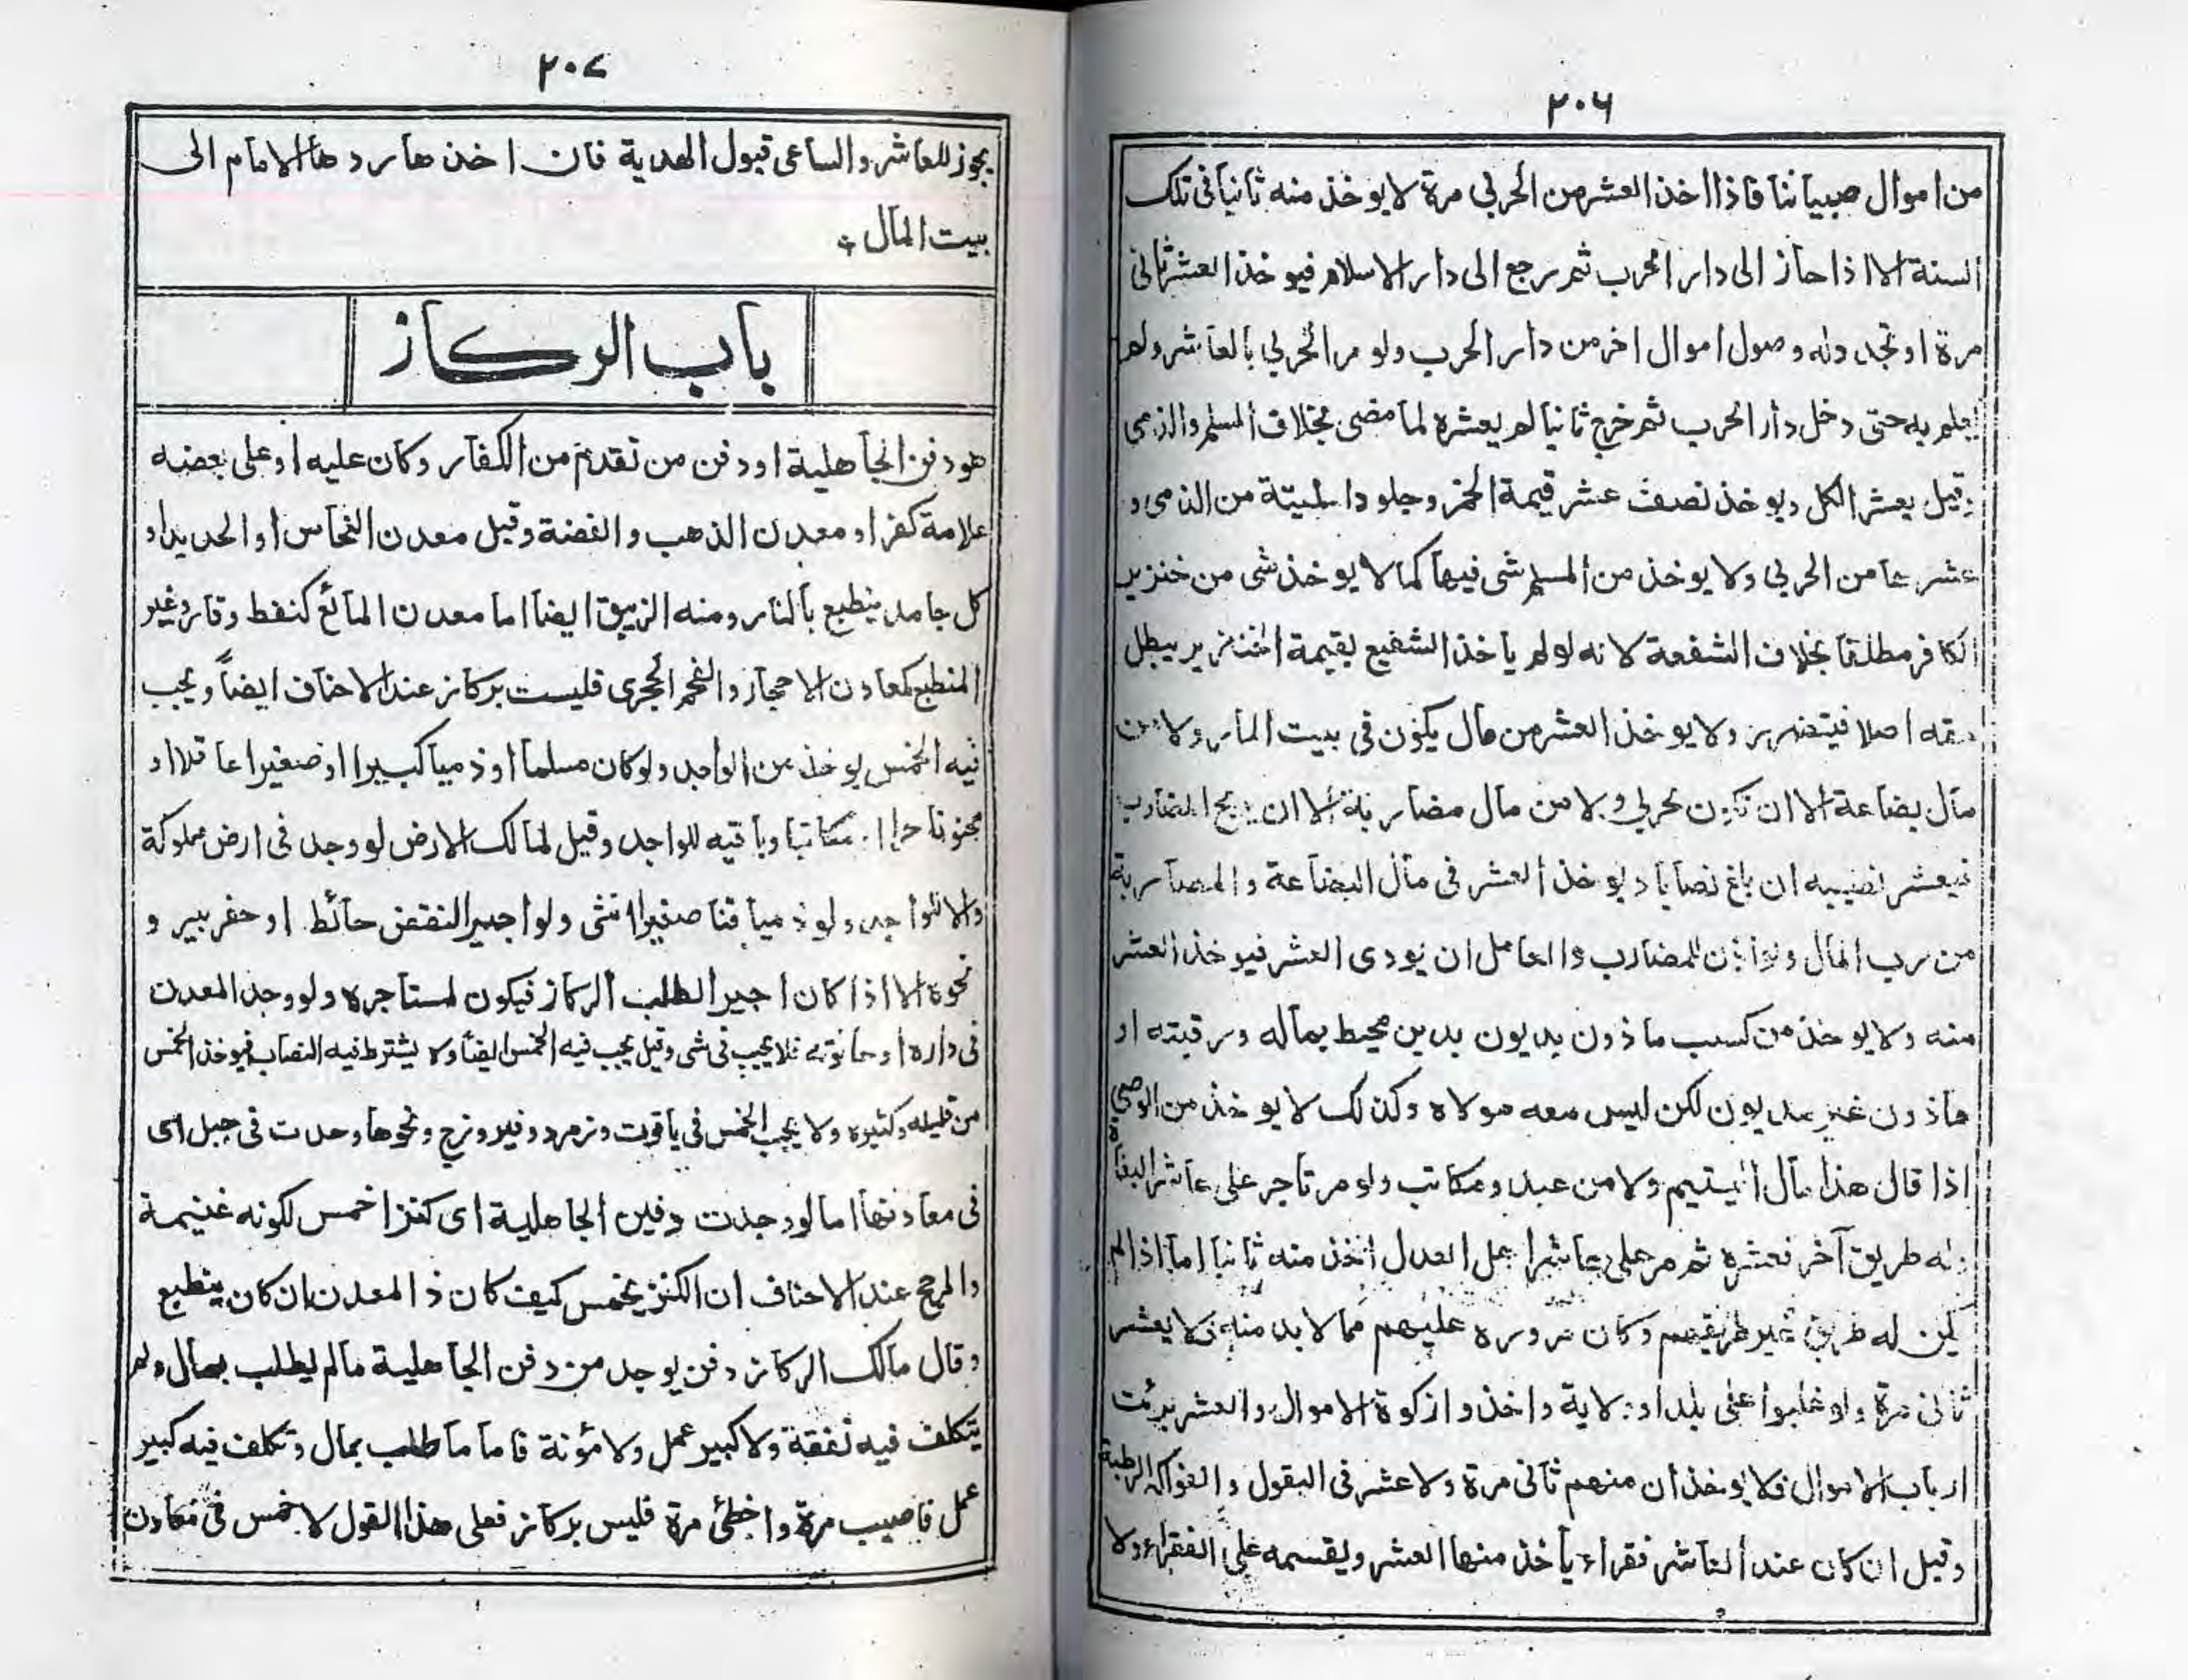 ٢٠٦
من اموال صبياننا فاذا اخذ العشر من الحربي مرة لا يوخذ منه ثانيا في تلك
السنة الا اذا جاز الى دار الحرب ثم رجع الى دار الاسلام فيوخذ العشر ثاني
مرة او تجدد له وصول اموال اخر من دار الحرب ولو مر الحربي بالعاشر ولم
يعلم به حتى دخل دار الحرب ثم خرج ثانيا لم يعشره لما مضى بخلاف المسلم والذمي
وقيل يعشر الكل ويوخذ نصف عشر قيمة الخمر وجلود الميتة من الذمي و
عشرها من الحربي ولا يوخذ من المسلم شي فيها كما لا يوخذ شي من خنزير
الكافر مطلقا بخلاف الشفعة لانه لو لم ياخذ الشفيع بقيمة الخنزير يبطل
حقه اصلا فيتضرر ولا يوخذ العشر من مال يكون في بيت المار ولا من
مال بضاعة الا ان تكون لحربي ولا من مال مضاربة الا ان يربح المضارب
فيعشر نصيبه ان بلغ نصابا ويوخذ العشر في مال البضاعة والمضاربة
من رب المال ولو اذن للمضارب والعامل ان يودى العشر فيوخذ العشر
منه ولا يوخذ من كسب ماذون بديون بدين محيط بماله ورقبته او
ماذون غير مديون لكن ليس معه مولاه وكذلك لا يوخذ من الوصي
اذا قال هذا مال اليتيم ولا من عبد ومكاتب ولو مر تاجر على عاشر البغاة
وله طريق آخر فعشره ثم مر على عاشر اهل العدل اخذ منه ثانيا اما اذا لم
يكن له طريق غير طريقهم وكان مروره عليهم مما لا بد منه فلا يعشر
ثاني مرة ولو غلبوا على بلد او ولاية واخذوا زكوة الاموال والعشر برئت
ارباب الاموال فلا يوخذ ان منهم ثاني مرة ولا عشر في البقول والفواكه الرطبة
وقيل ان كان عند العاشر فقراء ياخذ منها العشر ويقسمه على الفقراء ولا
٢٠٧
يجوز للعاشر والساعى قبول الهدية فان اخذها ردها الامام الى
بيت المال
باب الركاز
هو دفن الجاهلية او دفن من تقدم من الكفار وكان عليه او على بعضه
علامة كفر او معدن الذهب والفضة وقيل معدن النحاس او الحديد او
كل جامد ينطبع بالنار ومنه الزيبق ايضا اما معدن المائع كنفط وقار وغير
المنطبع كمعادن الاحجار والفحم الحجرى فليست بركاز عند الاحناف ايضاً ويجب
فيه الخمس يوخذ من الواجد ولو كان مسلما او ذميا كبيرا او صغيرا عاقلا او
مجنونا حرا او مكاتبا وباقيه للواجد وقيل لمالك الارض لو وجد في ارض مملوكة
والا للواجد ولو ذميا قنا صغيرا انثى ولو اجيرا لنقض حائط او حفر بير و
نحوه الا اذا كان اجيرا لطلب الركاز فيكون لمستاجره ولو وجد المعدن
في داره او حانوته فلا يجب في شي وقيل يجب فيه الخمس ايضا ولا يشترط فيه النصاب فيوخذ الخمس
من قليله وكثيره ولا يجب الخمس في ياقوت وزمرد وفيروزج ونحوها وجدت في جبل اى
في معادنها اما لو وجدت دفين الجاهلية اى كنزا خمس لكونه غنيمة
والمرجح عند الاحناف ان الكنز يخمس كيف كان ذ المعدن ان كان ينطبع
وقال مالك الركاز دفن يوجد من دفن الجاهلية مالم يطلب بمال ولم
يتكلف فيه نفقة ولا كبير عمل ولا مؤنة فاما ما طلب بمال وتكلف فيه كبير
عمل فاصيب مرة واخطئ مرة فليس بركاز فعلى هذا القول لا خمس في معادن